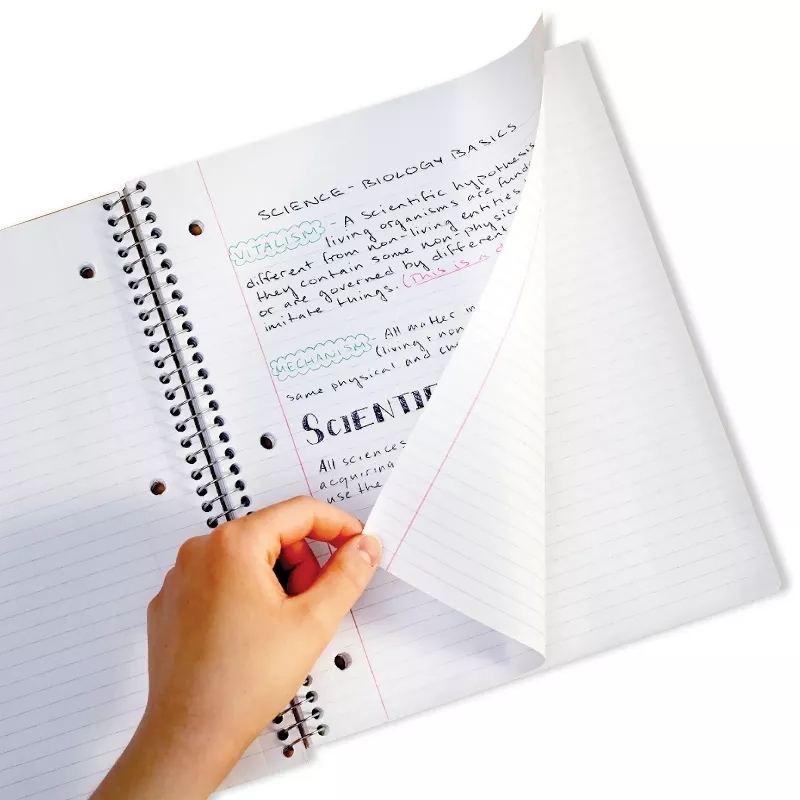 SCIENCE - BIOLOGY BASICS
VITALISM - A Scientific hypothesis
living organisms are
different from non-living entities
they contain some non-physic
or are governed by different
imitate things. (This is a
MECHANISM - All matter in
(living + non
same physical and
SCIENTI
All sciences
acquiring
use the